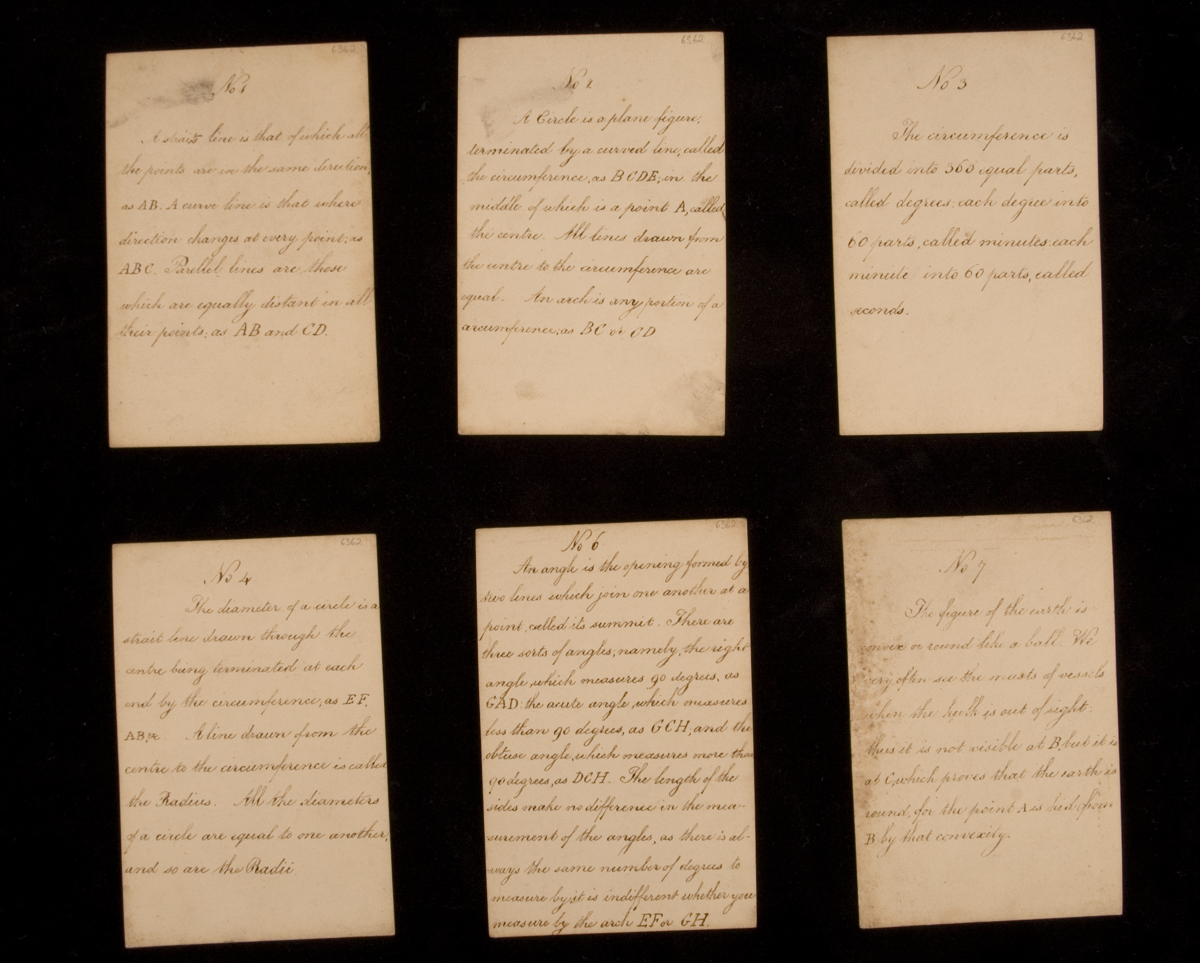 6362
No 1
A strait line is that of which all
the points are in the same direction,
as AB. A curve line is that where
direction changes at every point; as
ABC. Parellel lines are those
which are equally distant in all
their points; as AB and CD.
6362
No 2
A Circle is a plane figure,
terminated by a curved line, called
the circumference, as BCDE; in the
middle of which is a point A, called
the centre. All lines drawn from
the centre to the circumference are
equal. An arch is any portion of a
circumference; as BC or CD
6362
No 3
The circumference is
divided into 360 equal parts,
called degrees; each degree into
60 parts, called minutes; each
minute into 60 parts, called
seconds.
6362
No 4
The diameter of a circle is a
strait line drawn through the
centre being terminated at each
end by the circumference, as EF,
AB, &c. A line drawn from the
centre to the circumference is called
the Radius. All the diameters
of a circle are equal to one another,
and so are the Radii
6362
No 6
An angle is the opening formed by
two lines which join one another at a
point, called its summit. There are
three sorts of angles, namely, the right
angle, which measures 90 degrees, as
GAD: the acute angle, which measures
less than 90 degrees, as GCH; and the
obtuse angle, which measures more than
90 degrees, as DCH. The length of the
sides make no difference in the mea-
surement of the angles, as there is al-
ways the same number of degrees to
measure by; it is indifferent whether you
measure by the arch EF or GH.
6362
No 7
The figure of the earth is
convex or round like a ball. We
very often see the masts of vessels
when the hulk is out of sight:
thus it is not visible at B, but it is
at C, which proves that the earth is
round, for the point A is hid from
B by that convexity.